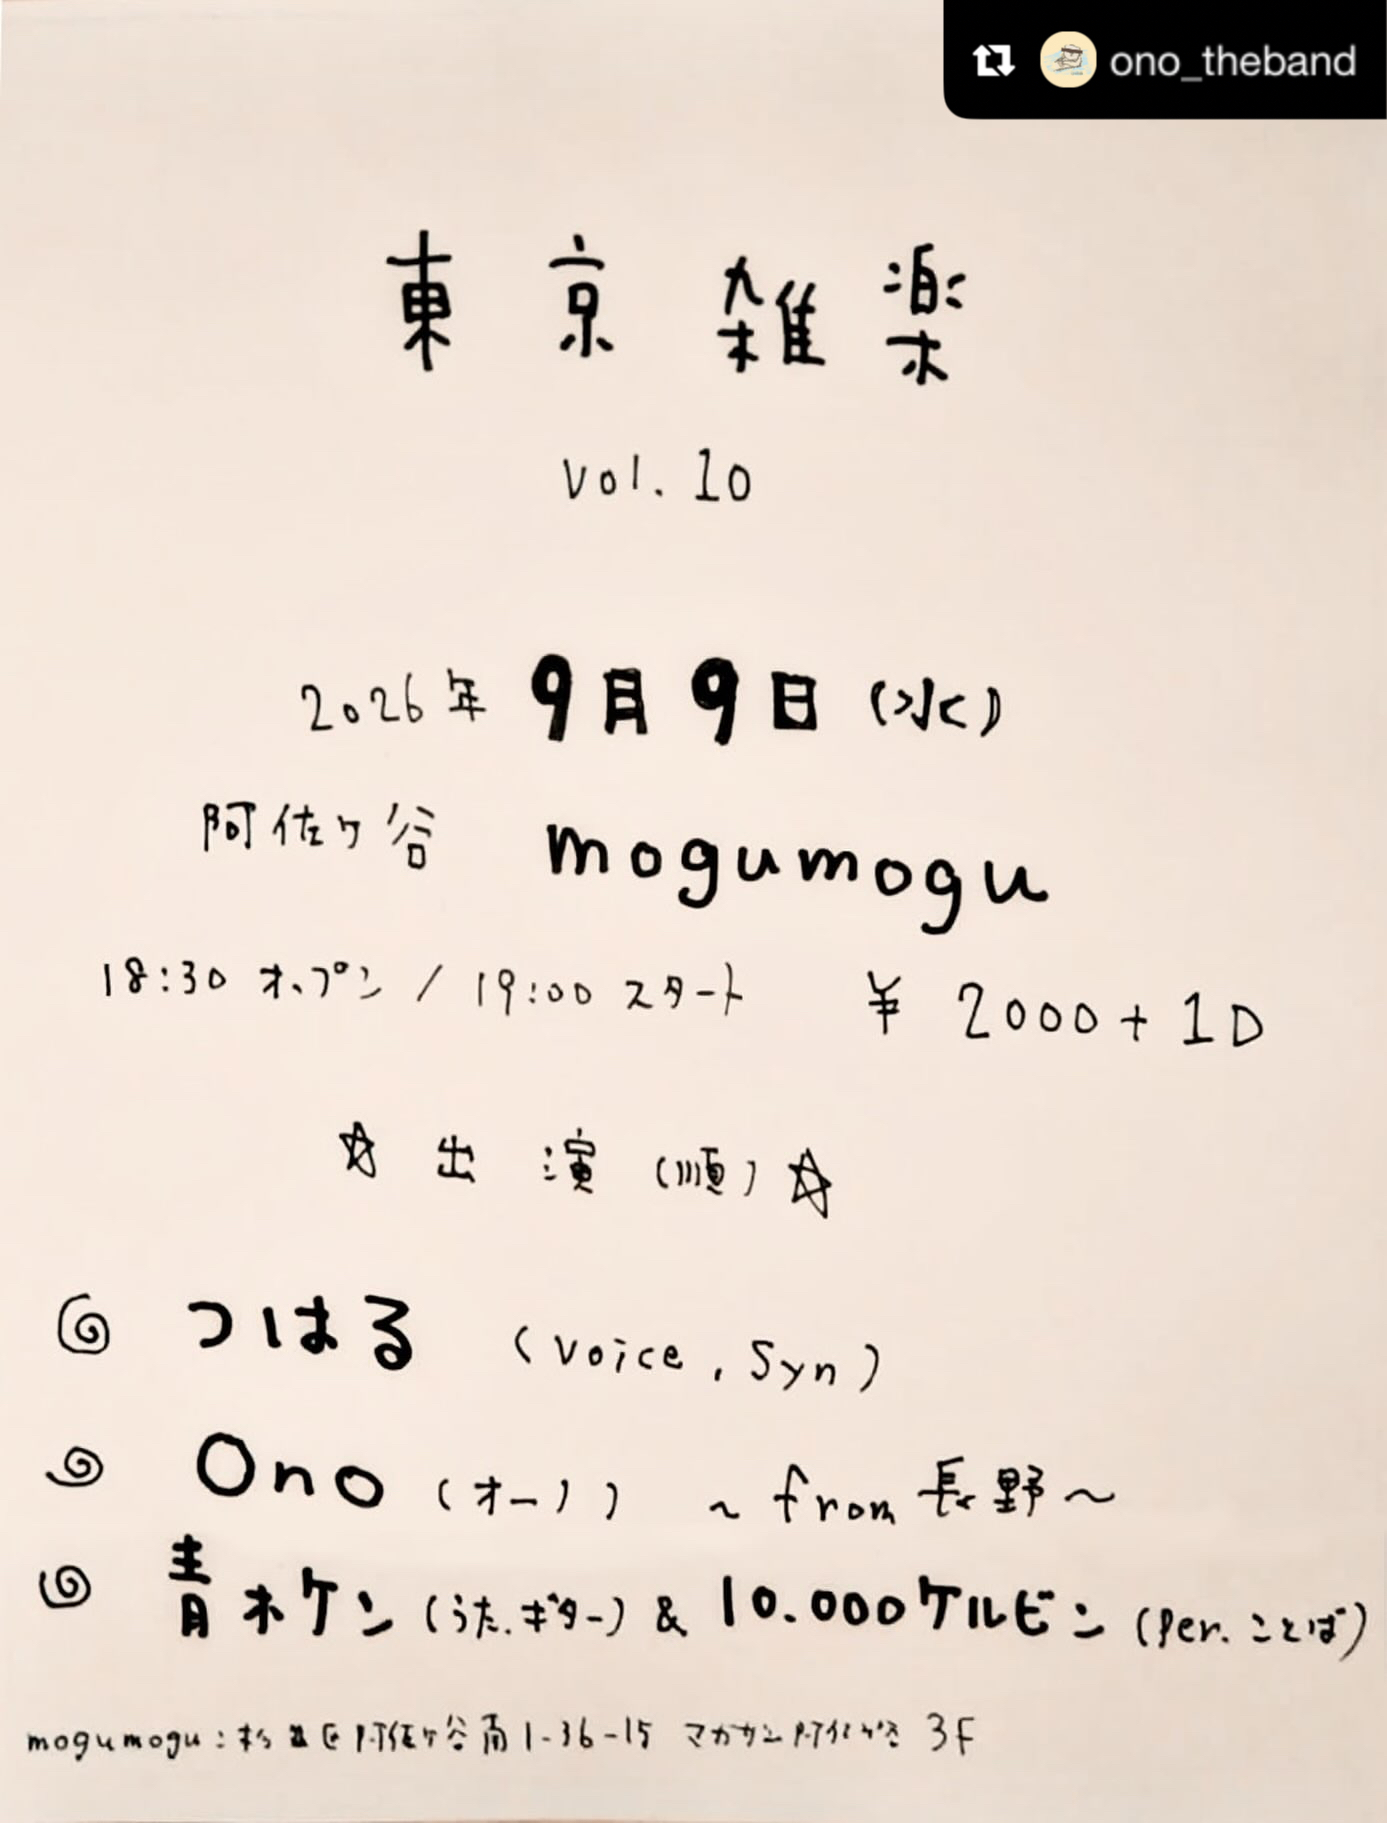 ono_theband
東京雑楽
vol. 10
2026年 9月9日(水)
阿佐ヶ谷 mogumogu
18:30 オープン / 19:00 スタート ¥ 2000 + 1D
☆ 出演(順) ☆
つはる (voice, Syn)
Ono (オーノ) ~ from 長野 ~
青木ケン (うた.ギター) & 10.000ケルビン (Per. ことば)
mogumogu : 杉並区阿佐ヶ谷南1-36-15 マガザン阿佐ヶ谷 3F